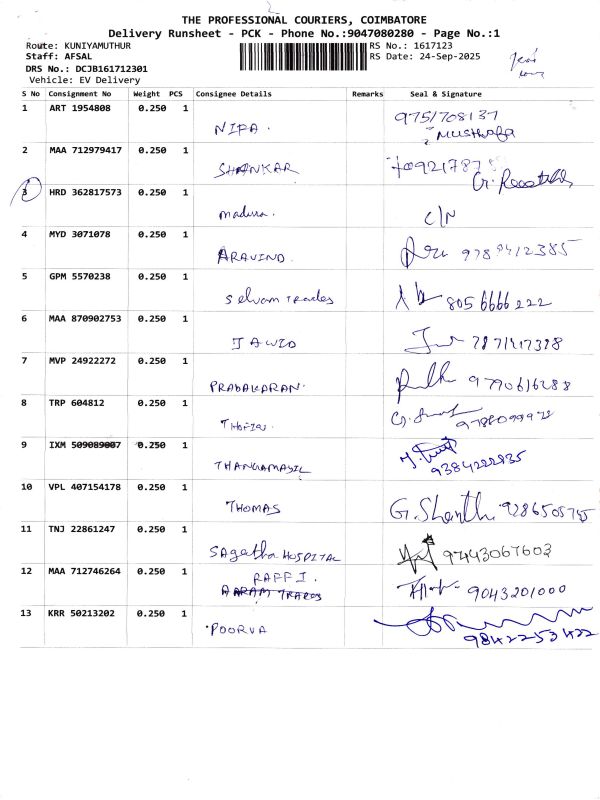 THE PROFESSIONAL COURIERS, COIMBATORE
Delivery Runsheet - PCK - Phone No.:9047080280 - Page No.:1
Route: KUNIYAMUTHUR
RS No.: 1617123
Staff: AFSAL
RS Date: 24-Sep-2025
DRS No.: DCJB161712301
Vehicle: EV Delivery
S No Consignment No Weight PCS Consignee Details Remarks Seal & Signature
1 ART 1954808 0.250 1 NIPA. 9751708137
Musthafa
2 MAA 712979417 0.250 1 SHANKAR
3 HRD 362817573 0.250 1 madura. C/N
4 MYD 3071078 0.250 1 ARAVIND.
5 GPM 5570238 0.250 1 Selvam Trades 8056666222
6 MAA 870902753 0.250 1 JAWID
7 MVP 24922272 0.250 1 PRABAKARAN. 9790616288
8 TRP 604812 0.250 1
9 IXM 509089007 0.250 1 THANGAMAYIL 9384222835
10 VPL 407154178 0.250 1 THOMAS G. Shanthi
11 TNJ 22861247 0.250 1 Sagatha HOSPITAL 97443067603
12 MAA 712746264 0.250 1 RAFFI. 9043201000
AARAM TRADES
13 KRR 50213202 0.250 1 POORVA 9842253422